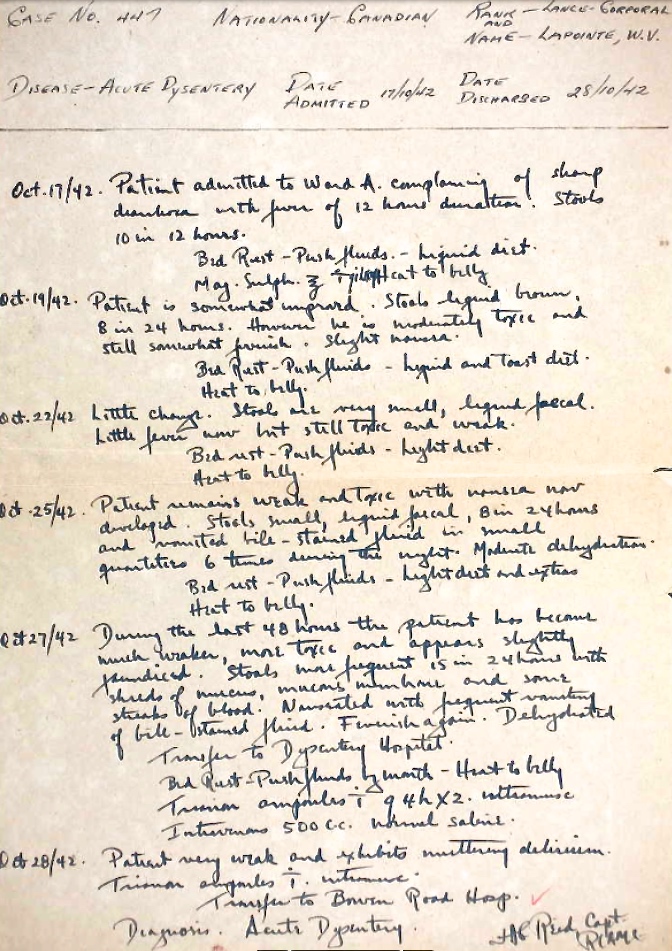 CASE NO. 447 NATIONALITY-CANADIAN RANK AND NAME - LANCE-CORPORAL LAPOINTE, W.V.
DISEASE-ACUTE DYSENTERY DATE ADMITTED 17/10/42 DATE DISCHARGED 28/10/42
Oct.17/42. Patient admitted to Ward A. complaining of sharp
diarrhoea with fever of 12 hours duration. Stools
10 in 12 hours.
Bed Rest - Push fluids. - Liquid diet.
Mag. Sulph. Heat to belly
Oct.19/42. Patient is somewhat improved. Stools liquid brown,
8 in 24 hours. However he is moderately toxic and
still somewhat feverish. Slight nausea.
Bed Rest - Push fluids - Liquid and toast diet.
Heat to belly.
Oct.22/42 Little change. Stools are very small, liquid faecal.
Little fever now but still toxic and weak.
Bed rest - Push fluids - Light diet.
Heat to belly.
Oct.25/42. Patient remains weak and toxic with nausea now
developed. Stools small, liquid faecal, 8 in 24 hours
and vomited bile-stained fluid in small
quantities 6 times during the night. Moderate dehydration.
Bed rest - Push fluids - Light diet and extras
Heat to belly.
Oct 27/42 During the last 48 hours the patient has become
much weaker, more toxic and appears slightly
jaundiced. Stools more frequent 15 in 24 hours with
shreds of mucus, mucous membrane and some
streaks of blood. Nauseated with frequent vomiting
of bile-stained fluid. Feverish again. Dehydrated
Transfer to Dysentery Hospital.
Bed Rest - Push fluids by mouth - Heat to belly
Trianon ampoules i q 4h X 2. intramusc
Intravenous 500 cc. normal saline.
Oct 28/42. Patient very weak and exhibits muttering delirium.
Trianon ampoules i. intramusc.
Transfer to Bowen Road Hosp.
Diagnosis. Acute Dysentery.
Reid Capt
RCAMC